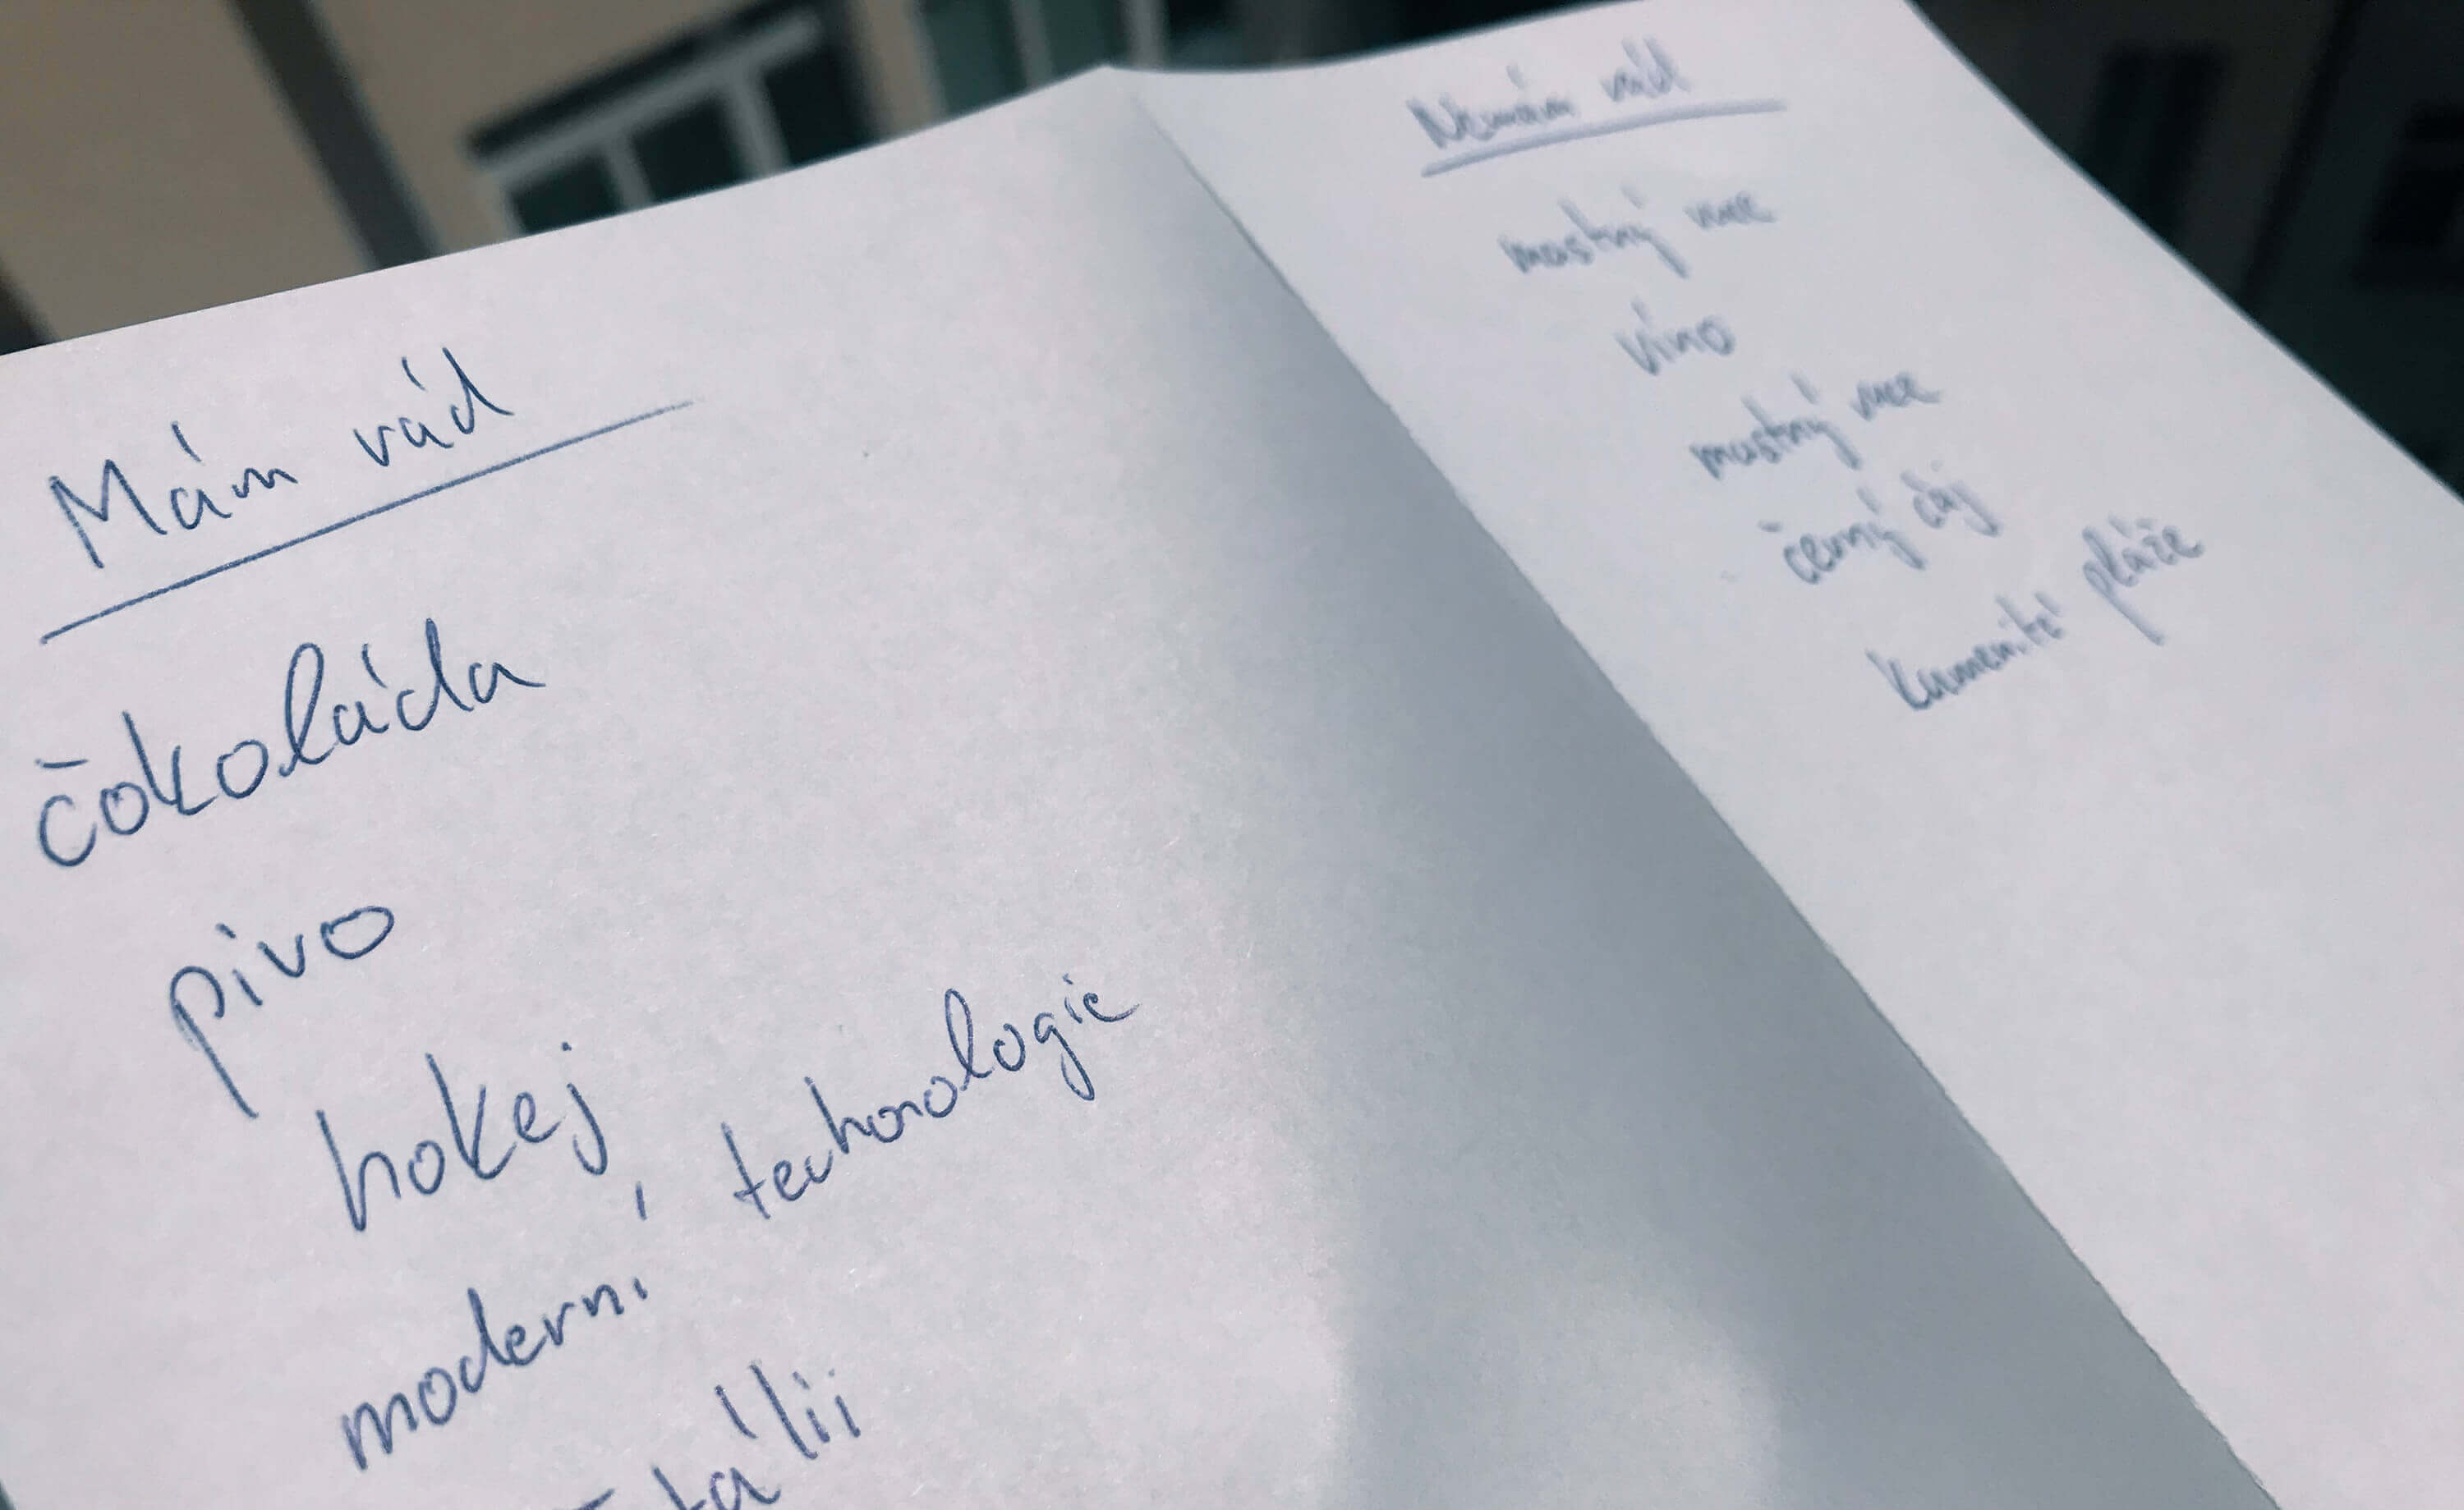 Mám rád
čokoláda
pivo
hokej
moderní technologie
Itálii
Nemám rád
mastný
víno
mastný
černý čaj
kamenité pláže